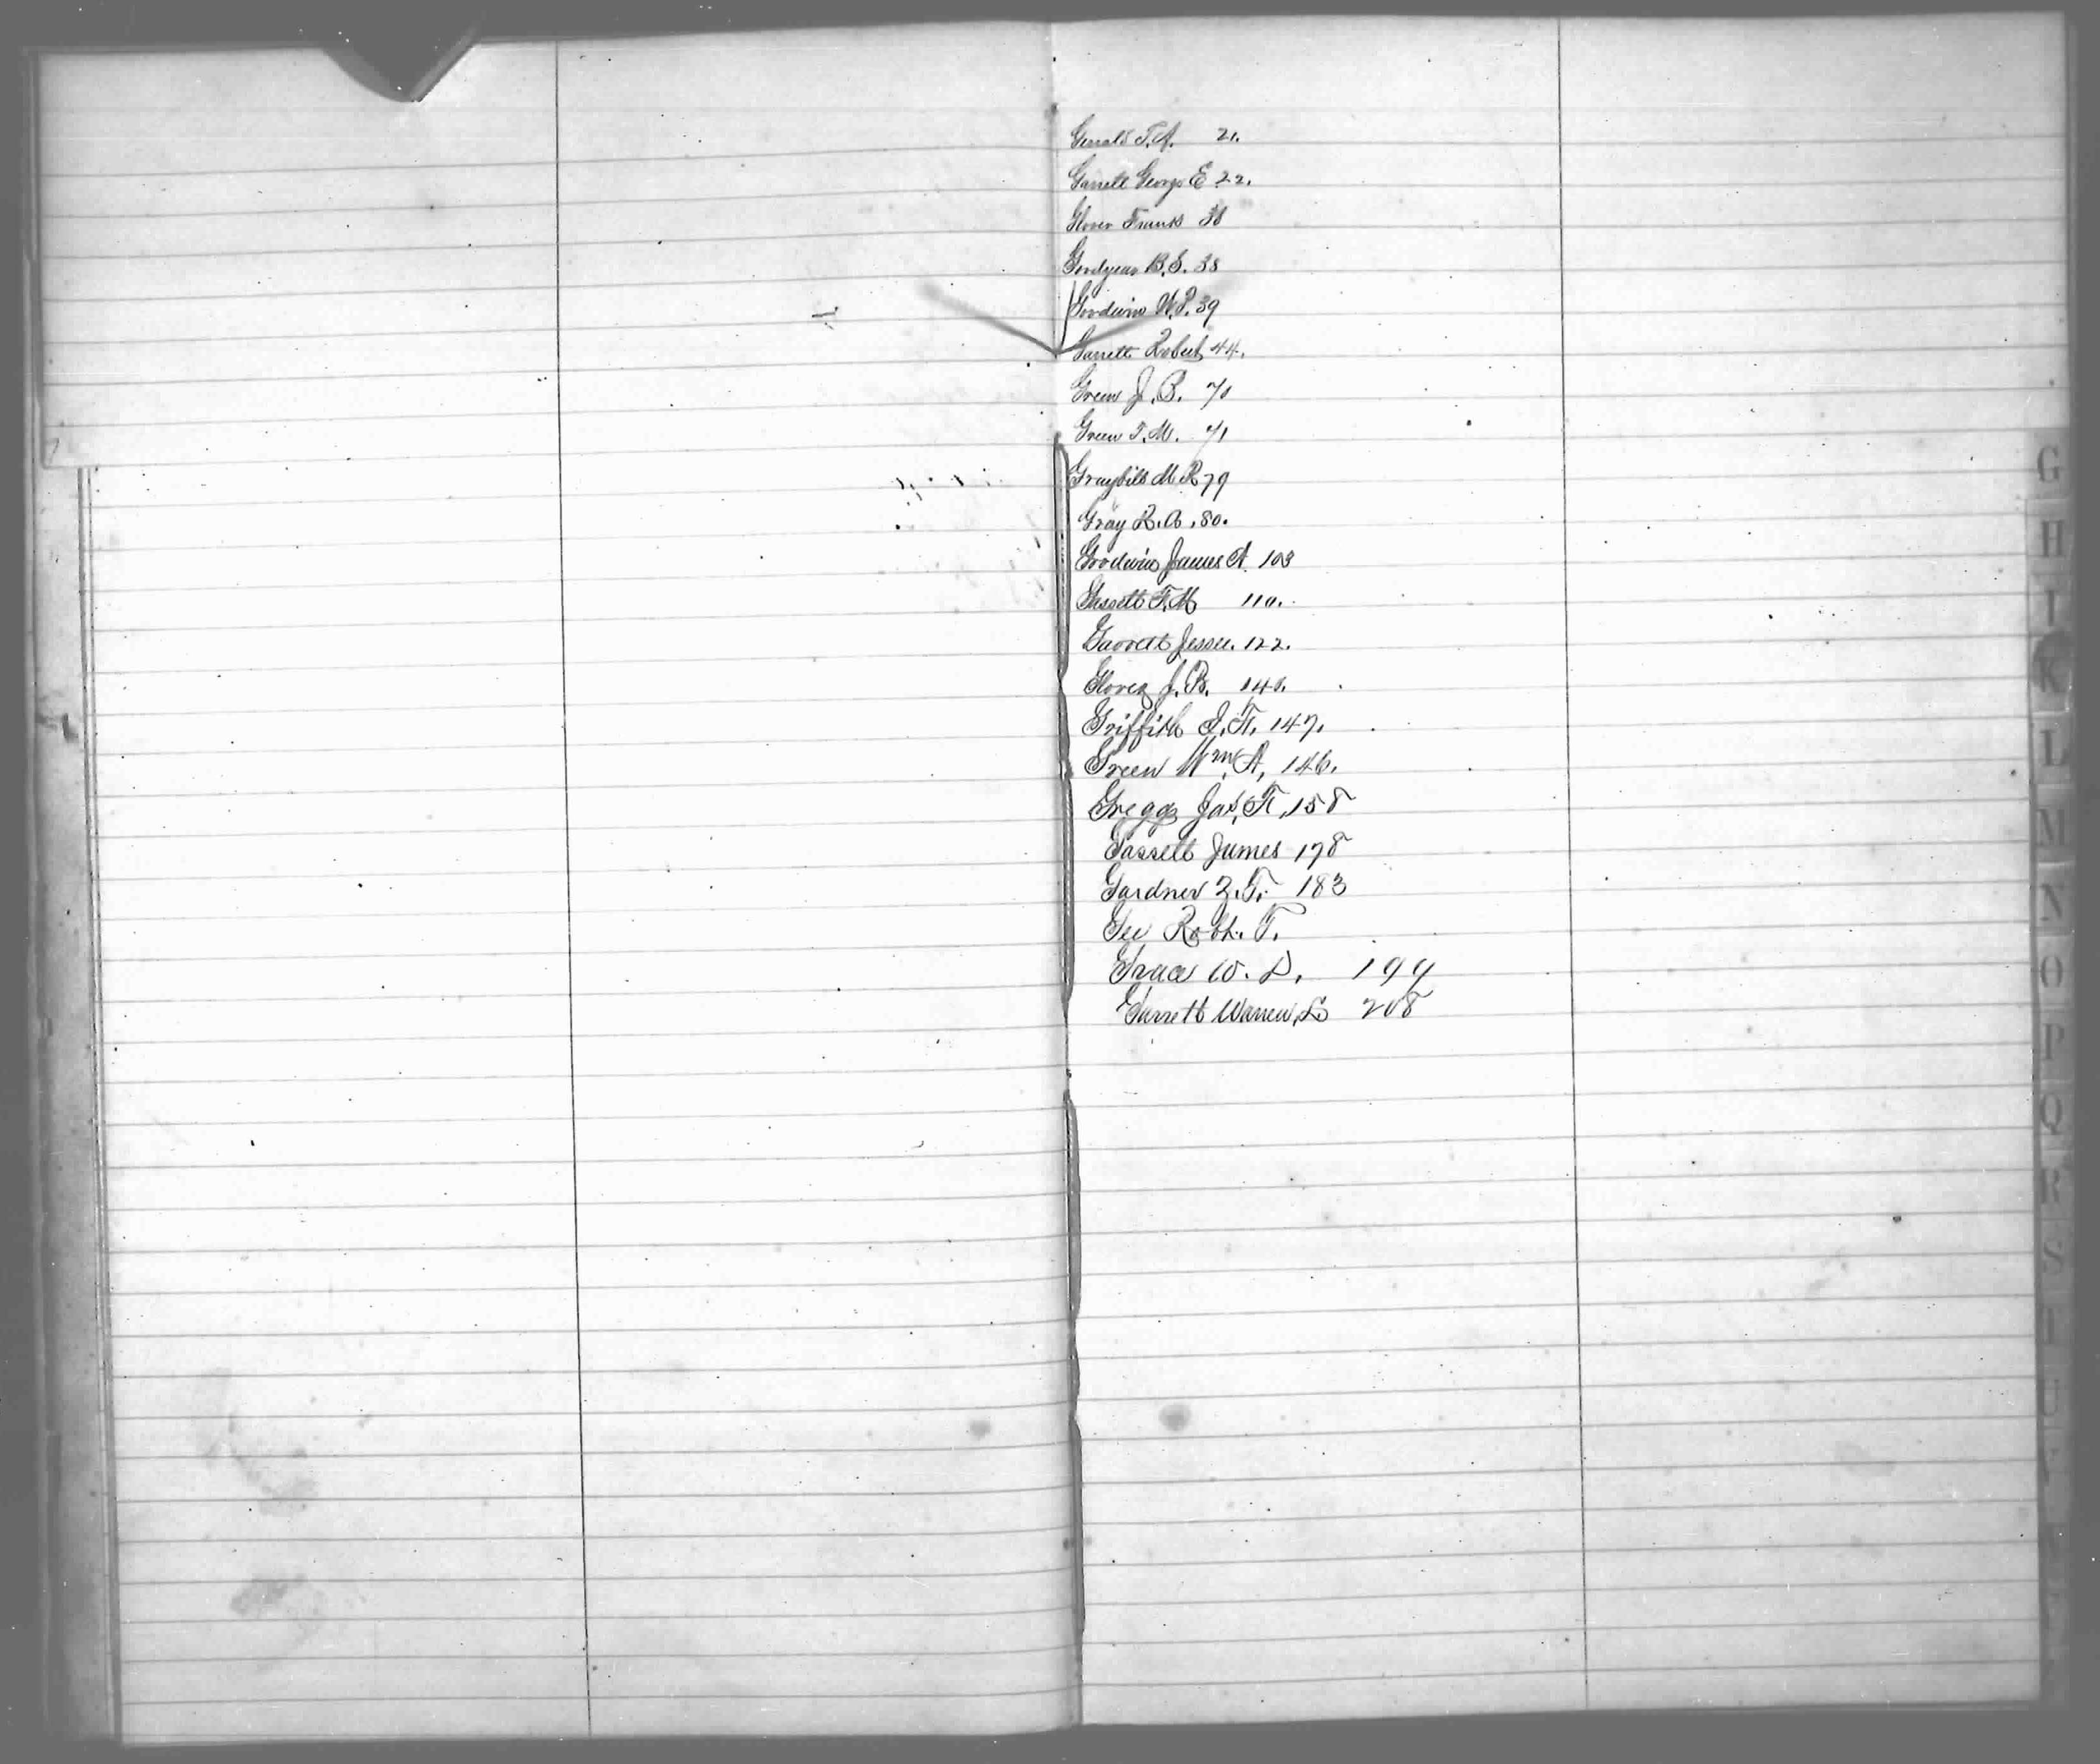 Gerald T. A. 21.
Garrett George E 22.
Glover Frank 38
Goodyear B. S. 38
Goodwin W. P. 39
Garrett Robert 44.
Green J. B. 70
Green T. M. 71
Graybill M R 79
Gray R. A. 80.
Goodwin James A 103
Gassett F. M 110.
Garrett Jessee. 122.
Glover J. B. 140.
Griffith J. H. 147.
Green Wm. A, 146.
Gregg Jas, H, 158
Gassett James 178
Gardner Z. T. 183
Gee Robt. T.
Grace W. D. 199
Garrett Warren, L 208
G
H
I
K
L
M
N
O
P
Q
R
S
T
U